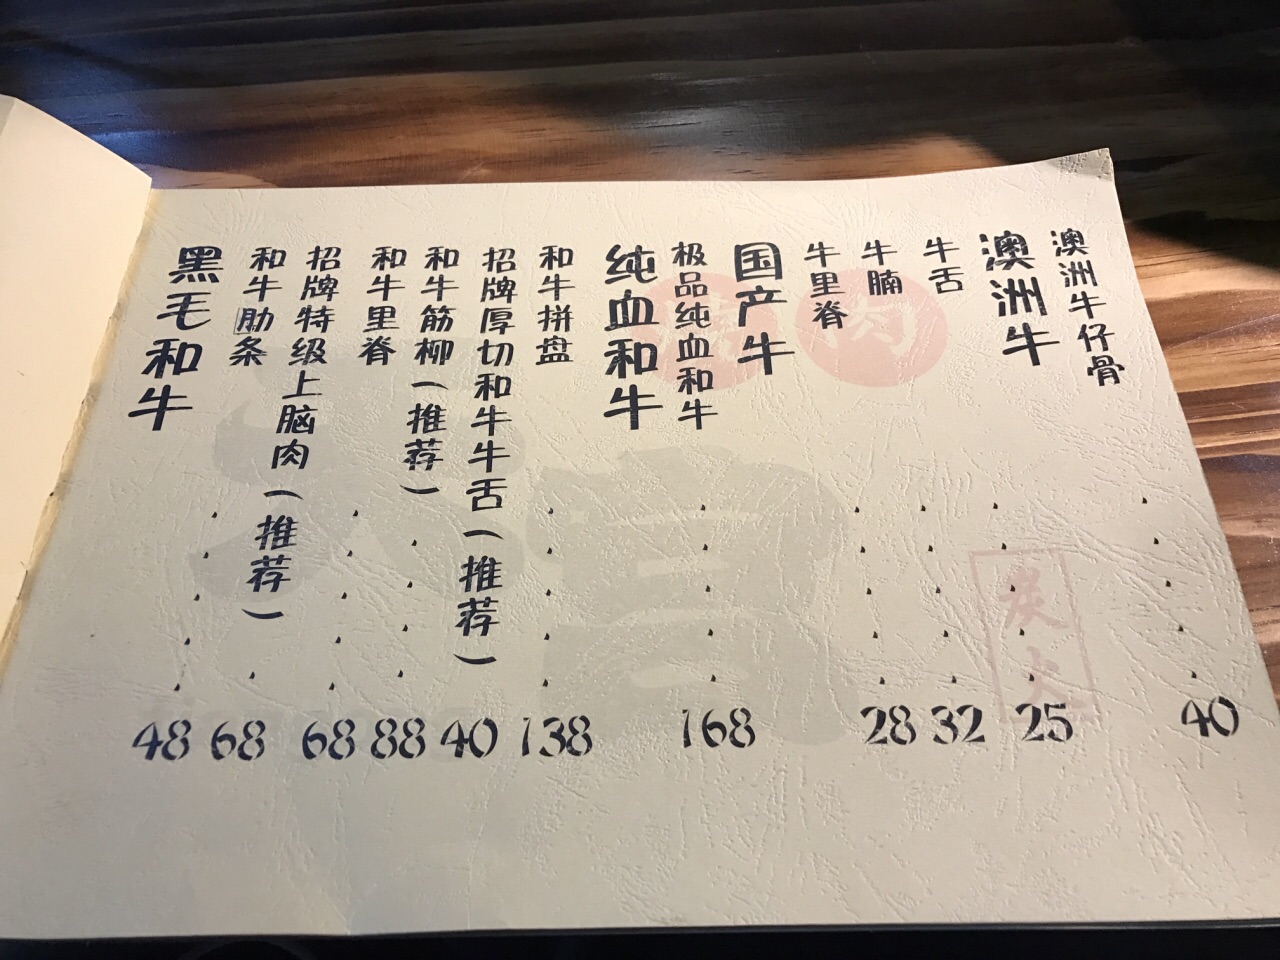 黑毛和牛
和牛肋条
招牌特级上脑肉（推荐）
和牛里脊
和牛筋柳（推荐）
招牌厚切和牛牛舌（推荐）
和牛拼盘
纯血和牛
极品纯血和牛
国产牛
牛里脊
牛腩
牛舌
澳洲牛
澳洲牛仔骨
48 68 68 88 40 138 168 28 32 25 40
烧肉
炭火